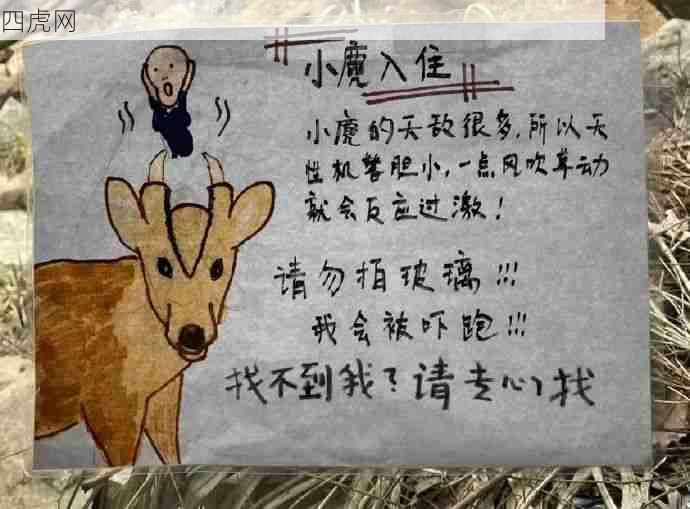 四虎网
小麂入住
小麂的天敌很多,所以天
性机警胆小,一点风吹草动
就会反应过激!
请勿拍玻璃!!!
我会被吓跑!!!
找不到我?请专心找